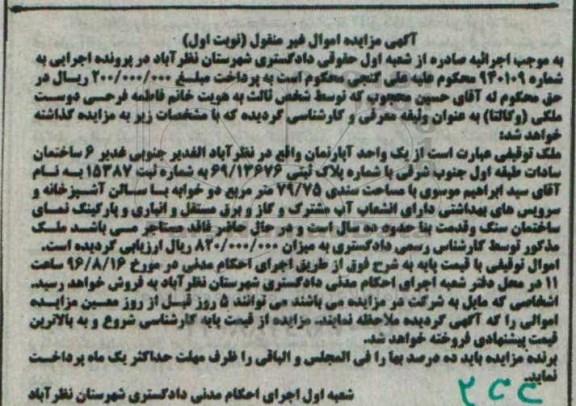 آگهی مزایده اموال غیر منقول (نوبت اول)
به موجب اجرائیه صادره از شعبه اول حقوقی دادگستری شهرستان نظرآباد در پرونده اجرایی به
شماره ۹۴۰۱۰۹ محکوم علیه علی گنجی محکوم است به پرداخت مبلغ ۲۰۰/۰۰۰/۰۰۰ ریال در
حق محکوم له آقای حسین محجوب که توسط شخص ثالث به هویت خانم فاطمه فرحی دوست
ملکی (وکالتا) به عنوان وثیقه معرفی و کارشناسی گردیده که با مشخصات زیر به مزایده گذاشته
خواهد شد:
ملک توقیفی عبارت است از یک واحد آپارتمان واقع در نظرآباد الغدیر جنوبی غدیر ۶ ساختمان
سادات طبقه اول جنوب شرقی با شماره پلاک ثبتی ۶۹/۱۳۶۷۶ به شماره ثبت ۱۵۳۸۷ به نام
آقای سید ابراهیم موسوی با مساحت سندی ۷۹/۷۵ متر مربع دو خوابه با سالن آشپزخانه و
سرویس های بهداشتی دارای انشعاب آب مشترک و گاز و برق مستقل و انباری و پارکینگ نمای
ساختمان سنگ و قدمت بنا حدود ده سال است و در حال حاضر فاقد مستاجر می باشد ملک
مذکور توسط کارشناس رسمی دادگستری به میزان ۸۲۰/۰۰۰/۰۰۰ ریال ارزیابی گردیده است.
اموال توقیفی با قیمت پایه به شرح فوق از طریق اجرای احکام مدنی در مورخ ۹۶/۸/۱۶ ساعت
۱۱ در محل دفتر شعبه اجرای احکام مدنی دادگستری شهرستان نظرآباد به فروش خواهد رسید.
اشخاصی که مایل به شرکت در مزایده می باشند می توانند ۵ روز قبل از روز معین مزایده
اموالی را که آگهی گردیده ملاحظه نمایند. مزایده از قیمت پایه کارشناسی شروع و به بالاترین
قیمت پیشنهادی فروخته خواهد شد.
برنده مزایده باید ده درصد بها را فی المجلس و الباقی را ظرف مهلت حداکثر یک ماه پرداخت
نماید.
شعبه اول اجرای احکام مدنی دادگستری شهرستان نظرآباد